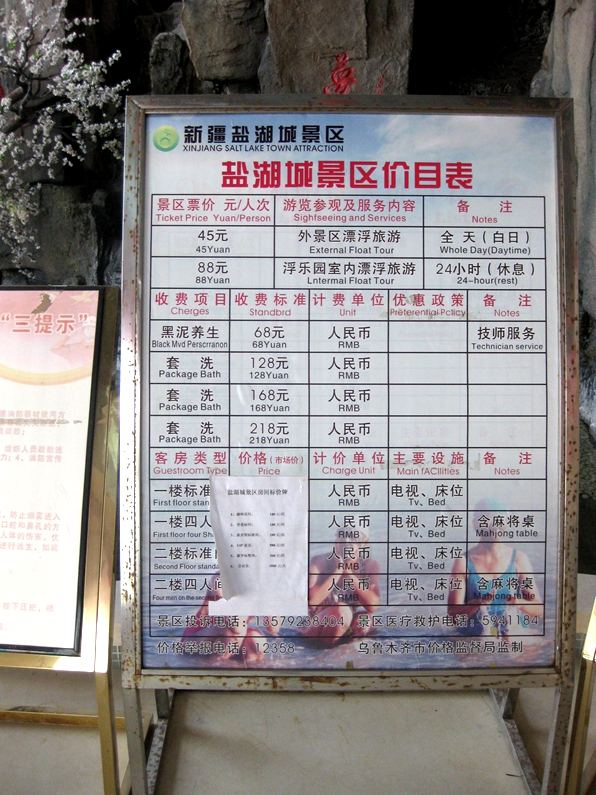 新疆盐湖城景区
XINJIANG SALT LAKE TOWN ATTRACTION
盐湖城景区价目表
景区票价 元/人次 游览参观及服务内容 备 注
Ticket Price Yuan/Person Sighfseeing and Services Notes
45元 外景区漂浮旅游 全 天（白日）
45Yuan External Float Tour Whole Day(Daytime)
88元 浮乐园室内漂浮旅游 24小时（休息）
88Yuan Lnternal Float Tour 24-hour(rest)
收费项目 收费标准 计费单位 优惠政策 备 注
Cherges Standbrd Unit Preterential Pclicy Notes
黑泥养生 68元 人民币 技师服务
Black Mvd Perscrranon 68Yuan RMB Technician service
套 洗 128元 人民币
Package Bath 128Yuan RMB
套 洗 168元 人民币
Package Bath 168Yuan RMB
套 洗 218元 人民币
Package Bath 218Yuan RMB
客房类型 价格(市场价) 计价单位 主要设施 备 注
Guestroom Type Price Charge Unit Main fACIlities Notes
一楼标准 人民币 电视、床位
First floor stan RMB Tv、Bed
一楼四人 人民币 电视、床位 含麻将桌
First floor four Sh RMB Tv、Bed Mahjong table
二楼标准间 人民币 电视、床位
Second Floor standa RMB Tv、Bed
二楼四人间 人民币 电视、床位 含麻将桌
Four men on the second RMB Tv、Bed Mahjong table
景区投诉电话：13579238404 景区医疗救护电话：5941184
价格举报电话：12358 乌鲁木齐市价格监督局监制
盐湖城景区房间标价牌
“三提示”